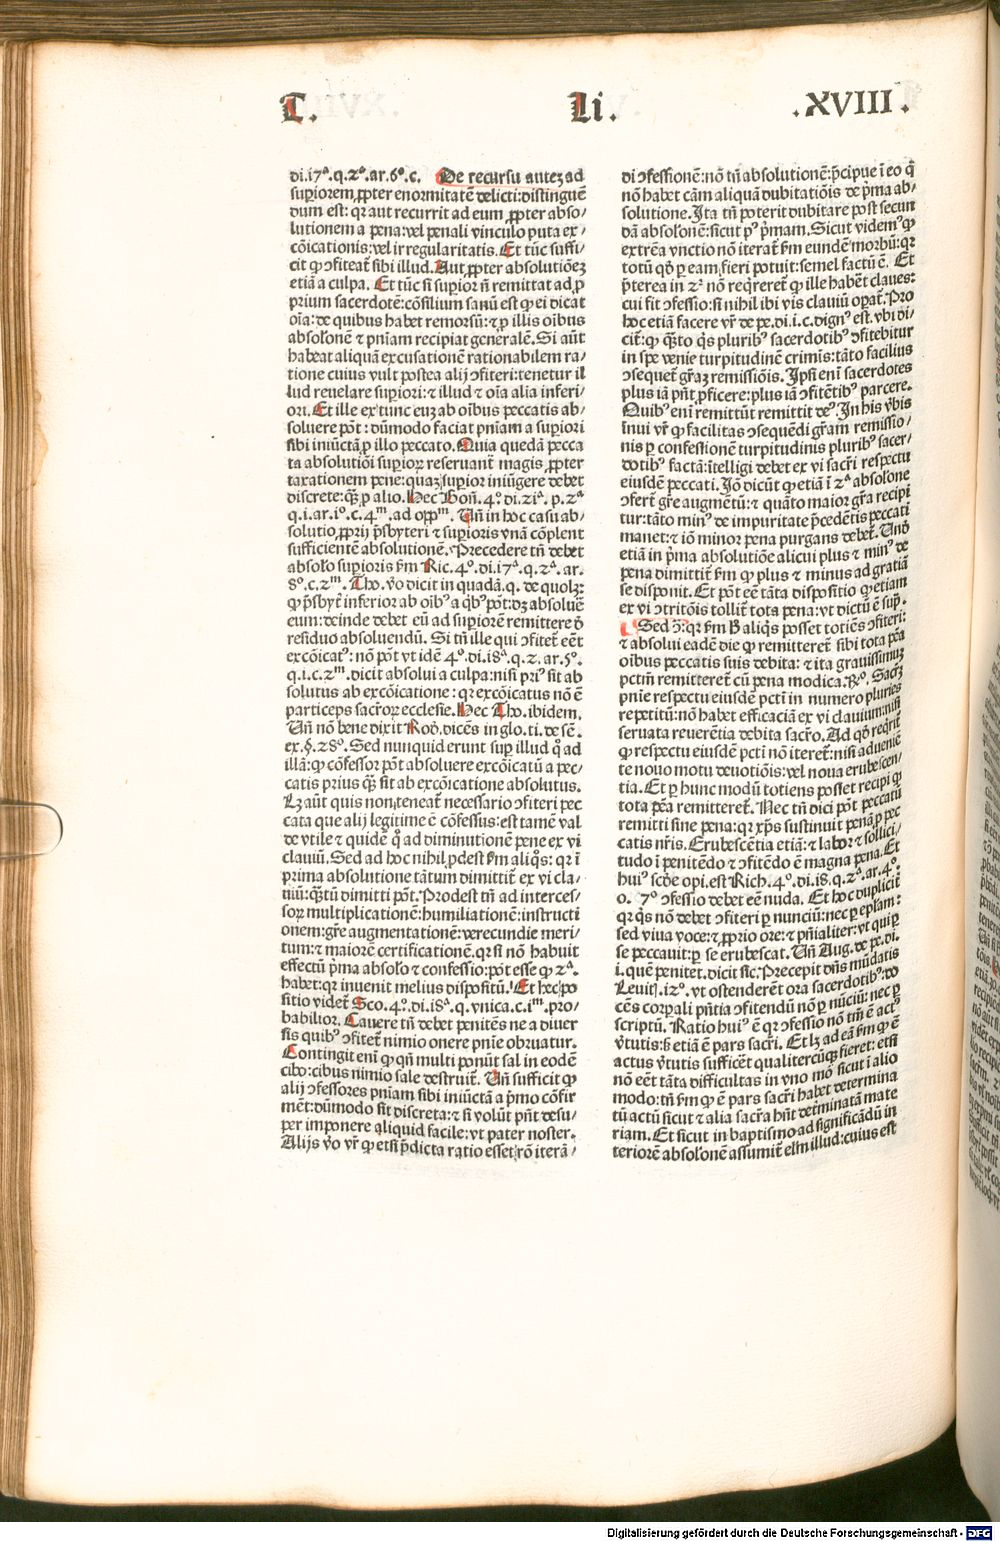 T. Li. .XVIII.
di.17ª.q.2ª.ar.6º.c. De recursu auteʒ ad
suꝑiorem ꝓpter enormitatē delicti:distinguē
dum est: qꝛ aut recurrit ad eum ꝓpter abso/
lutionem a pena:vel penali vinculo puta ex/
cōicationis:vel irregularitatis. Et tūc suffi/
cit ꝙ ɔfiteat̄ sibi illud. Aut ꝓpter absolutiōeʒ
etiā a culpa. Et tūc si suꝑior n̄ remittat ad ꝓ
prium sacerdotē:cōsilium sanū est ꝙ ei dicat
oīa:de quibus habet remorsū:⁊ ꝓ illis oībus
absolonē ⁊ pn̄iam recipiat generalē. Si aūt
habeat aliquā excusationē rationabilem ra/
tione cuius vult postea alij ɔfiteri:tenetur il
lud reuelare suꝑiori:⁊ illud ⁊ oīa alia inferi/
ori. Et ille ex tunc euʒ ab oībus peccatis ab/
soluere pōt: dūmodo faciat pn̄iam a suꝑiori
sibi iniūctā ꝓ illo peccato. Quia quedā pecca
ta absolutiōi suꝑioꝝ reseruant̄ magis ꝓpter
taxationem pene:quaʒ suꝑior iniūgere debet
discrete:qꝫ̄ ꝓ alio. Hec Bon̄. 4º. di. 21ª. p. 2ª
q.i.ar.iº.c.4ᵐ.ad oppᵐ. Un̄ in hoc casu ab/
solutio ꝓprij p̄sbyteri ⁊ suꝑioris vnā cōplent
sufficientē absolutionē. Precedere tn̄ debet
absolo suꝑioris ẜm Ric. 4º. di.17ª.q.2ª.ar.
8º.c.2ᵐ. Tho. v̄o dicit in quadā.q. de quolꝫ:
ꝙ p̄sbyt̄ inferior ab oībꝰ a qͥbꝰ pōt:dʒ absoluē
eum:deinde debet eū ad suꝑiorē remittere ꝓ
residuo absoluendū. Si tn̄ ille qui ɔfitet̄ eēt
excōicatꝰ: nō pōt vt idē 4º.di.18ª.q.2.ar.5º.
q.i.c.2ᵐ.dicit absolui a culpa:nisi priꝰ sit ab
solutus ab excōicatione : qꝛ excōicatus nō ē
particeps sacroꝝ ecclesie. Hec Tho. ibidem.
Un̄ nō bene dixit Rod̄. dicēs in glo.ti.de sē.
ex.§.28º. Sed nunquid erunt suꝑ illud q̊ ad
illā: ꝙ cōfessor pōt absoluere excōicatū a pec/
catis prius qꝫ̄ sit ab excōicatione absolutus.
Lʒ aūt quis non teneat̄ necessario ɔfiteri pec
cata que alij legitime ē cōfessus:est tamē val
de vtile ⁊ quidē q̊ ad diminutionē pene ex vi
clauiū. Sed ad hoc nihil ꝓdest ẜm aliq̊s: qꝛ ī
prima absolutione tātum dimittit̄ ex vi cla/
uiū:qꝫ̄tū dimitti pōt. Prodest tn̄ ad interces/
soꝝ multiplicationē:humiliationē:instructi
onem:gr̄e augmentationē:verecundie meri/
tum:⁊ maiorē certificationē.qꝛ si nō habuit
effectū p̄ma absolo ⁊ confessio:pōt esse ꝙ 2ª.
habet:qꝛ inuenit melius dispositū. Et hec po
sitio videt̄ Sco. 4º. di.18ª.q. vnica.c.iᵐ.pro/
babilior. Cauere tn̄ debet penitēs ne a diuer
sis quibꝰ ɔfitet̄ nimio onere pn̄ie obruatur.
Contingit eni ꝙ qn̄ multi ponūt sal in eodē
cibo:cibus nimio sale destruit̄. Un̄ sufficit ꝙ
alij ɔfessores pn̄iam sibi iniūctā a p̄mo cōfir
mēt:dūmodo sit discreta:⁊ si volūt pn̄t desu/
per imponere aliquid facile:vt pater noster.
Alijs v̄o vr̄ ꝙ etsi p̄dicta ratio esset ꝓ iterā/
di ɔfessionē:nō tn̄ absolutionē:p̄cipue ī eo q̊
nō habet cām aliquā dubitatiōis de p̄ma ab/
solutione. Ita tn̄ poterit dubitare post secun
dā absolonē:sicut pꝰ p̄mam. Sicut videmꝰ ꝙ
extrēa vnctio nō iterat̄ ẜm eundē morbū:qꝛ
totū qd̄ ꝑ eam fieri potuit:semel factū ē. Et
p̄terea in 2ª nō req̄reret̄ ꝙ ille habēt claues:
cui fit ɔfessio:si nihil ibi vis clauiū opat̄. Pro
hoc etiā facere vr̄ de pe.di.i.c.dignꝰ est.vbi di/
cit̄: ꝙ qꝫ̄to q̊s pluribꝰ sacerdotibꝰ ɔfitebitur
in spe venie turpitudinē crimīs:tāto facilius
ɔsequet̄ gr̄aʒ remissiōis. Ipsi eni sacerdotes
plus iā pn̄t ꝓficere:plus iā ɔfitētibꝰ parcere.
Quibꝰ eni remittūt remittit deꝰ. In his v̄bis
īnui vr̄ ꝙ facilitas ɔsequēdi gr̄am remissio/
nis ꝑ confessionē turpitudinis pluribꝰ sacer/
dotibꝰ factā:ītelligi debet ex vi sacr̄i respectu
eiusdē peccati. Iō dicūt ꝙ etiā ī 2ª absolone
ɔfert̄ gr̄e augmētū:⁊ quāto maior gr̄a recipi
tur:tāto minꝰ de impuritate p̄cedētis peccati
manet:⁊ iō minor pena purgans debet̄. Unō
etiā in p̄ma absolutiōe alicui plus ⁊ minꝰ de
pena dimittit̄ ẜm ꝙ plus ⁊ minus ad gratiā
se disponit. Et pōt eē tāta dispositio ꝙ etiam
ex vi ɔtritōis tollit̄ tota pena:vt dictū ē sup̄.
Sed ɔ̄: qꝛ ẜm B aliq̊s posset totiēs ɔfiteri:
⁊ absolui eadē die ꝙ remitteret̄ sibi tota pēa
oībus peccatis suis debita: ⁊ ita grauissimuʒ
pctm̄ remitteret̄ cū pena modica. R̄º. Sacr̄ʒ
pn̄ie respectu eiusdē pctī in numero pluries
repetitū:nō habet efficaciā ex vi clauium:nisi
seruata reuerētia debita sacr̄o. Ad qd̄ req̄rit̄
ꝙ respectu eiusdē pctī nō iteret̄:nisi aduenīē
te nouo motu deuotiōis:vel noua erubescen/
tia. Et ꝑ hunc modū totiens posset recipi ꝙ
tota pēa remitteret̄. Nec tn̄ dici pōt peccatū
remitti sine pena:qꝛ xp̄s sustinuit penā ꝓ pec
catis nr̄is. Erubescētia etiā:⁊ labor ⁊ sollici/
tudo ī penitēdo ⁊ ɔfitēdo ē magna pena. Et
huiꝰ scde opi. est Rich. 4º.di.18.q.2ª.ar.4º.
o. 7º ɔfessio debet eē nuda. Et hoc duplicit̄
qꝛ q̊s nō debet ɔfiteri ꝑ nunciū:nec ꝑ epl̄am:
sed viua voce:⁊ ꝓprio ore:⁊ pn̄ialiter:vt qui ꝑ
se peccauit:ꝑ se erubescat. Un̄ Aug. de pe. di.
i. quē penitet. dicit sic. Precepit dn̄s mūdatis
Leuit̄.12º. vt ostenderēt ora sacerdotibꝰ:do
cēs corꝑali pn̄tia ɔfitendū nō ꝑ nūciū: nec ꝑ
scriptū. Ratio huiꝰ ē qꝛ ɔfessio nō tm̄ ē actꝰ
v̄tutis:ẜ etiā ē pars sacr̄i. Et lʒ ad eā ẜm ꝙ ē
actus v̄tutis sufficēt qualitercūqꝫ fieret: etsi
nō eēt tāta difficultas in vno mō sicut ī alio
modo:tn̄ ẜm ꝙ ē pars sacr̄i habet determina
tū actū sicut ⁊ alia sacr̄a hn̄t determinatā mate
riam. Et sicut in baptismo ad significādū in
teriorē absolonē assumit̄ elm̄ illud:cuius est
Digitalisierung gefördert durch die Deutsche Forschungsgemeinschaft - DFG